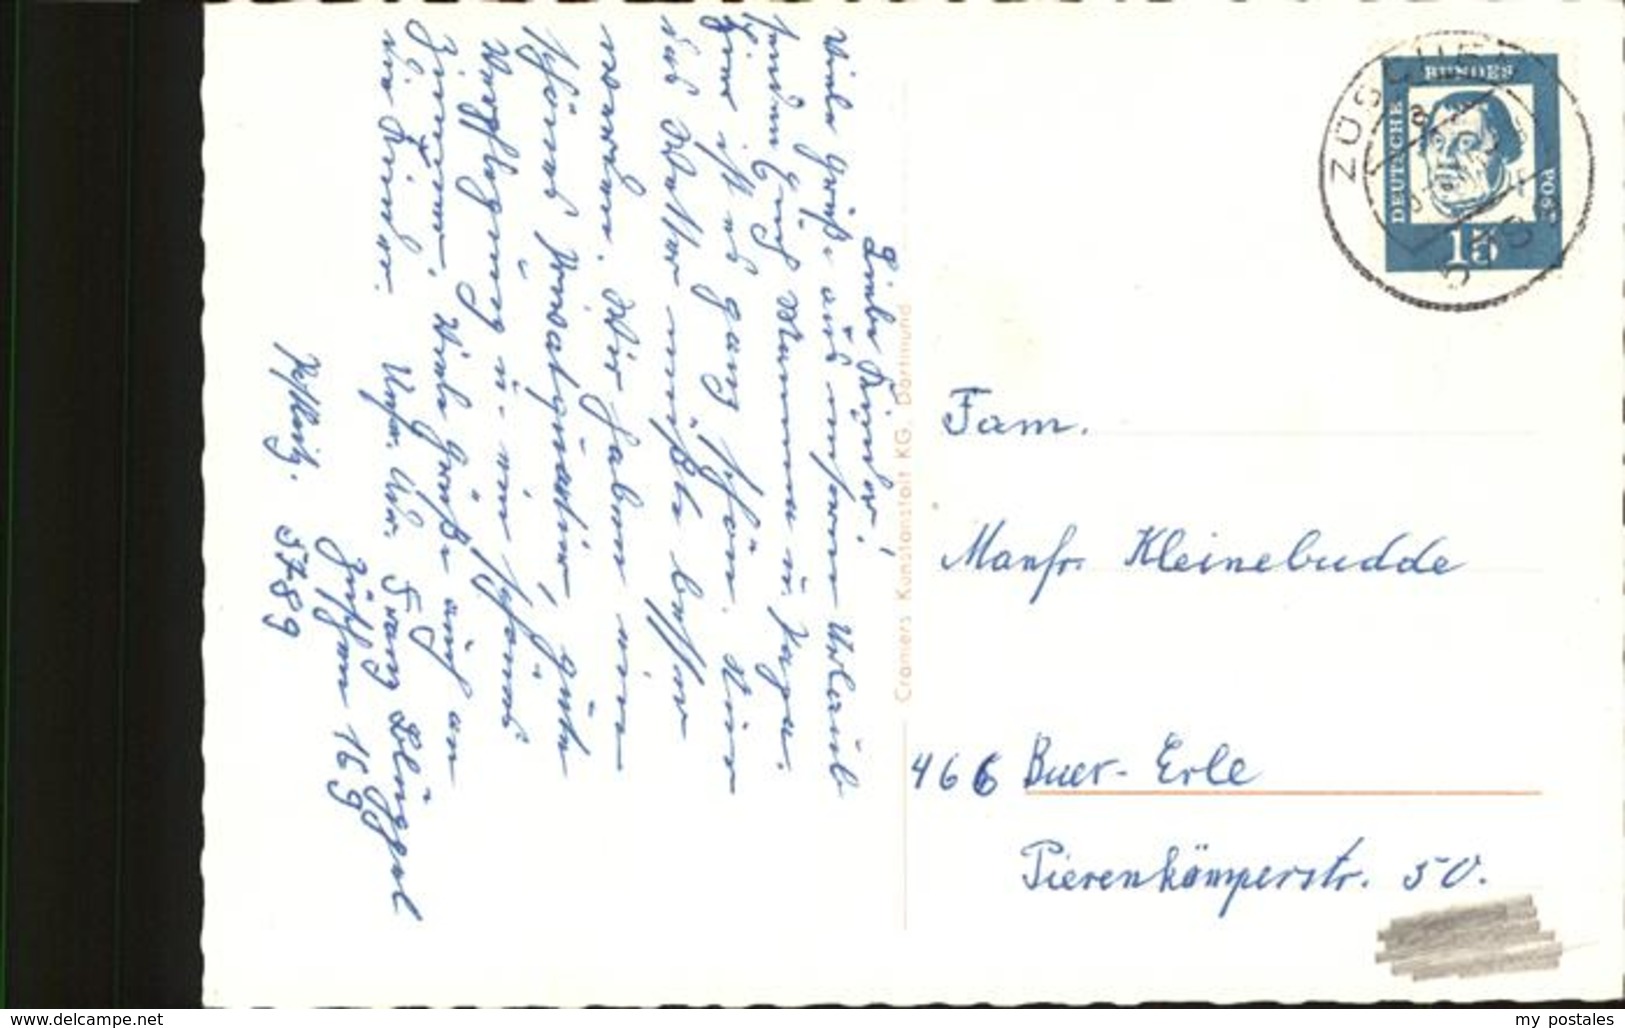 Liebe Kinder!
Viele Grüße aus unserem Urlaub
senden Euch Mamma u. Papa.
Hier ist es ganz schön. Nur
das Wetter müßte besser
werden. Wir haben ein
schönes Privatquatier, gute
Verpflegung u. ein schönes
Zimmer. Viele Grüße auch an
die Kinder.
Unsr. Adr. Franz Blüggel
Züschen 169
Postleitz. 5789
Cramers Kunstanstalt KG, Dortmund
ZÜSCHEN
DEUTSCHE BUNDES POST
15
Fam.
Manfr. Kleinebudde
466 Buer-Erle
Pierenkämperstr. 50.
www.delcampe.net
my postales